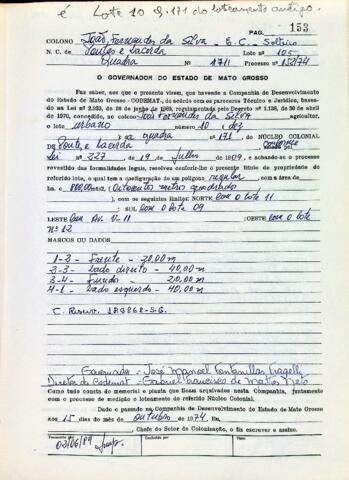 é Lote 10 Q. 171 do loteamento antigo.
PAG. 153
COLONO João Fernandes da Silva - E.C. Solteiro
N. C. de Pontes e Lacerda Lote nº 105
Quadra Nº 1711 Processo nº 15874
O GOVERNADOR DO ESTADO DE MATO GROSSO
Faz saber, aos que a presente virem, que havendo a Companhia de Desenvolvimento
do Estado de Mato Grosso - CODEMAT-, de acôrdo com os pareceres Técnico e Jurídico,
na Lei nº 2.323, de 28 de junho de 1969, regulamentada pelo Decreto nº 1.138, de 30 de abril
de 1970, concedido, ao colono João Fernandes da SILVA agricultor,
o lote urbano número 10 (dez
) e quadra nº 171 do NÚCLEO COLONIAL
DE Pontes e Lacerda conforme
Lei nº 227, de 19, de Julho de 1909, e achando-se o processo
revestido das formalidades legais, resolveu conferir-lhe o presente título de propriedade do
referido lote, o qual tem a configuração de um polígono regular, com a área de
ha. 800,00 mts2, (Oitocentos metros quadrado
) com os seguintes limites: NORTE com o lote 11
SUL com o Lote 09
LESTE com Av. V-11 OESTE com o lote
Nº 12
MARCOS OU DADOS
1-2 - Frente - 20,00 m
2-3 - Lado direito - 40,00 m
3-4 - Fundos - 20,00 m
4-1 - Lado esquerdo - 40,00 m
Governador - José Manoel Fontanillas Fragelli
Diretor da Codemat - Gabriel Francisco de Mattos Neto
Como tudo consta do memorial e planta que ficam arquivados nesta Companhia, juntamente
com o processo de medição e loteamento do referido Núcleo Colonial.
Dado e passado na Companhia de Desenvolvimento do Estado de Mato Grosso
aos 15 dias do mês de outubro de 1974. Eu,
, Chefe do Setor de Colonização, o fiz escrever e assino.
02/06/89